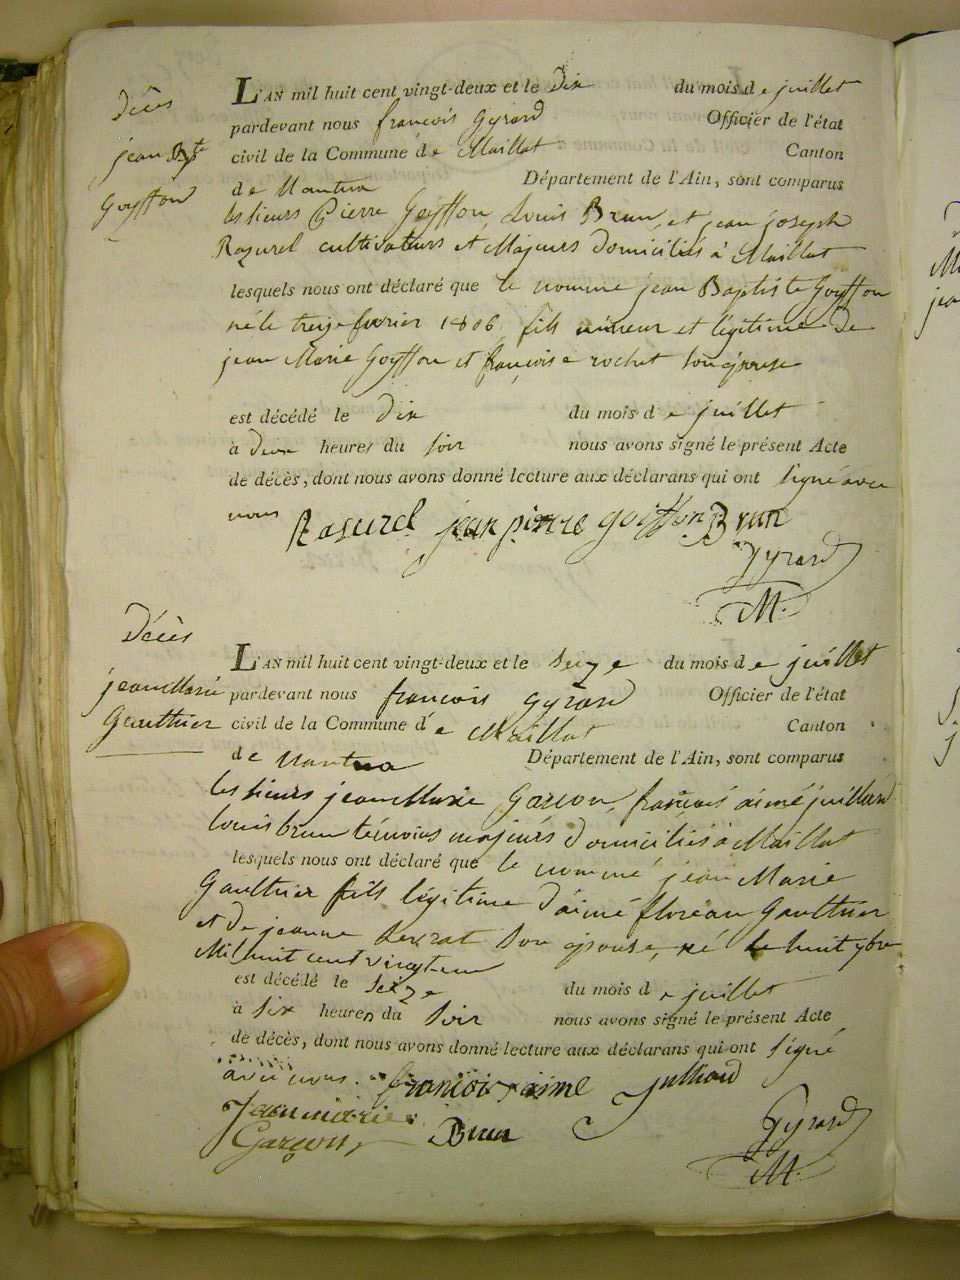 Décès
jean Bte
Goyffon
L'AN mil huit cent vingt-deux et le Dix du mois de juillet
pardevant nous francois Gyrard Officier de l'état
civil de la Commune de Maillat Canton
de Nantua Département de l'Ain, sont comparus
les sieurs Pierre Goyffon Louis Brun, et jean joseph
Rasurel cultivateurs et Majeurs Domiciliés à Maillat
lesquels nous ont déclaré que le nommé jean Baptiste Goyffon
né le treize fevrier 1806, fils mineur et légitime de
jean Marie Goyffon et françoise rochet son épouse
est décédé le dix du mois de juillet
à Deux heures du soir nous avons signé le présent Acte
de décès, dont nous avons donné lecture aux déclarans qui ont signé avec
nous Rasurel jean pierre goiffon Brun
Gyrard
M.
Décès
jean Marie
Gauthier
L'AN mil huit cent vingt-deux et le seize du mois de juillet
pardevant nous francois Gyrard Officier de l'état
civil de la Commune de Maillat Canton
de Nantua Département de l'Ain, sont comparus
les sieurs jean Marie Garcon, françois aimé juilliard
louis brun témoins majeurs Domiciliés à Maillat
lesquels nous ont déclaré que le nommé jean Marie
Gauthier fils légitime D'aimé floréau Gauthier
et de jeanne son épouse, né le huit ybre
Mil huit cent vingt-un
est décédé le seize du mois de juillet
à six heures du soir nous avons signé le présent Acte
de décès, dont nous avons donné lecture aux déclarans qui ont signé
avec nous. francois aime Julliard
Jean marie
Garçon, Brun Gyrard
M.